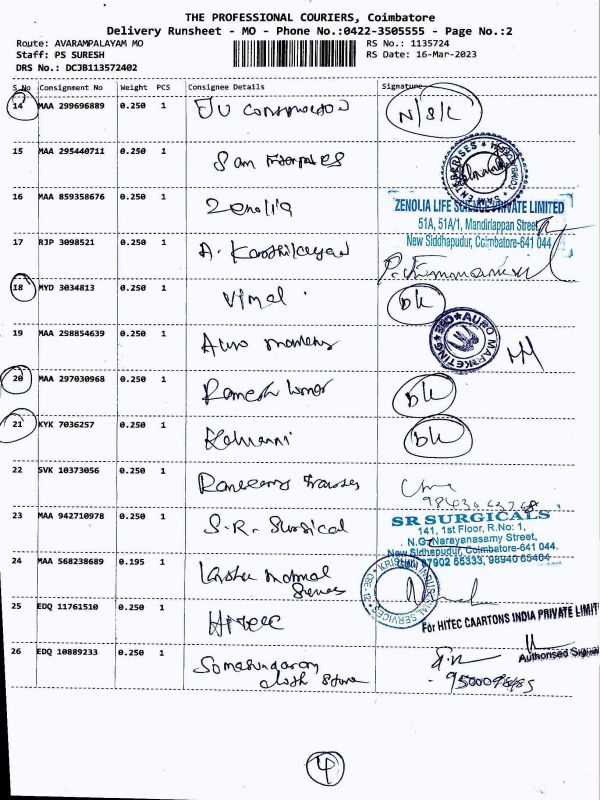 THE PROFESSIONAL COURIERS, Coimbatore
Delivery Runsheet - MO - Phone No.:0422-3505555 - Page No.:2
Route: AVARAMPALAYAM MO
RS No.: 1135724
Staff: PS SURESH
RS Date: 16-Mar-2023
DRS No.: DCJB113572402
S No Consignment No Weight PCS Consignee Details Signature
14 MAA 299696889 0.250 1 N/S/L
15 MAA 295440711 0.250 1 Sam
16 MAA 859358676 0.250 1 Zenolia
ZENOLIA LIFE SCIENCE PRIVATE LIMITED
51A, 51A/1, Mandirlappan Street
New Siddhapudur, Coimbatore-641 044
17 RJP 3098521 0.250 1 A. Karthikeyan
18 MYD 3034813 0.250 1 Vimal DK
19 MAA 298854639 0.250 1 Auro
AURO MARKETING CBE
20 MAA 297030968 0.250 1 Ramesh Kumar DK
21 KYK 7036257 0.250 1 DK
22 SVK 10373056 0.250 1
23 MAA 942710978 0.250 1 S.R. Surgical
SR SURGICALS
141, 1st Floor, R.No: 1,
N.G. Narayanasamy Street,
New Sidhapudur, Coimbatore-641 044.
97902 55333, 98940 65404
24 MAA 568238689 0.195 1
KRISHNA INDUSTRIAL SERVICES CBE-12
25 EDQ 11761510 0.250 1 Hitecc
For HITEC CAARTONS INDIA PRIVATE LIMIT
Authorised Signa
26 EDQ 10889233 0.250 1 Somasundaram
cloth Store
4